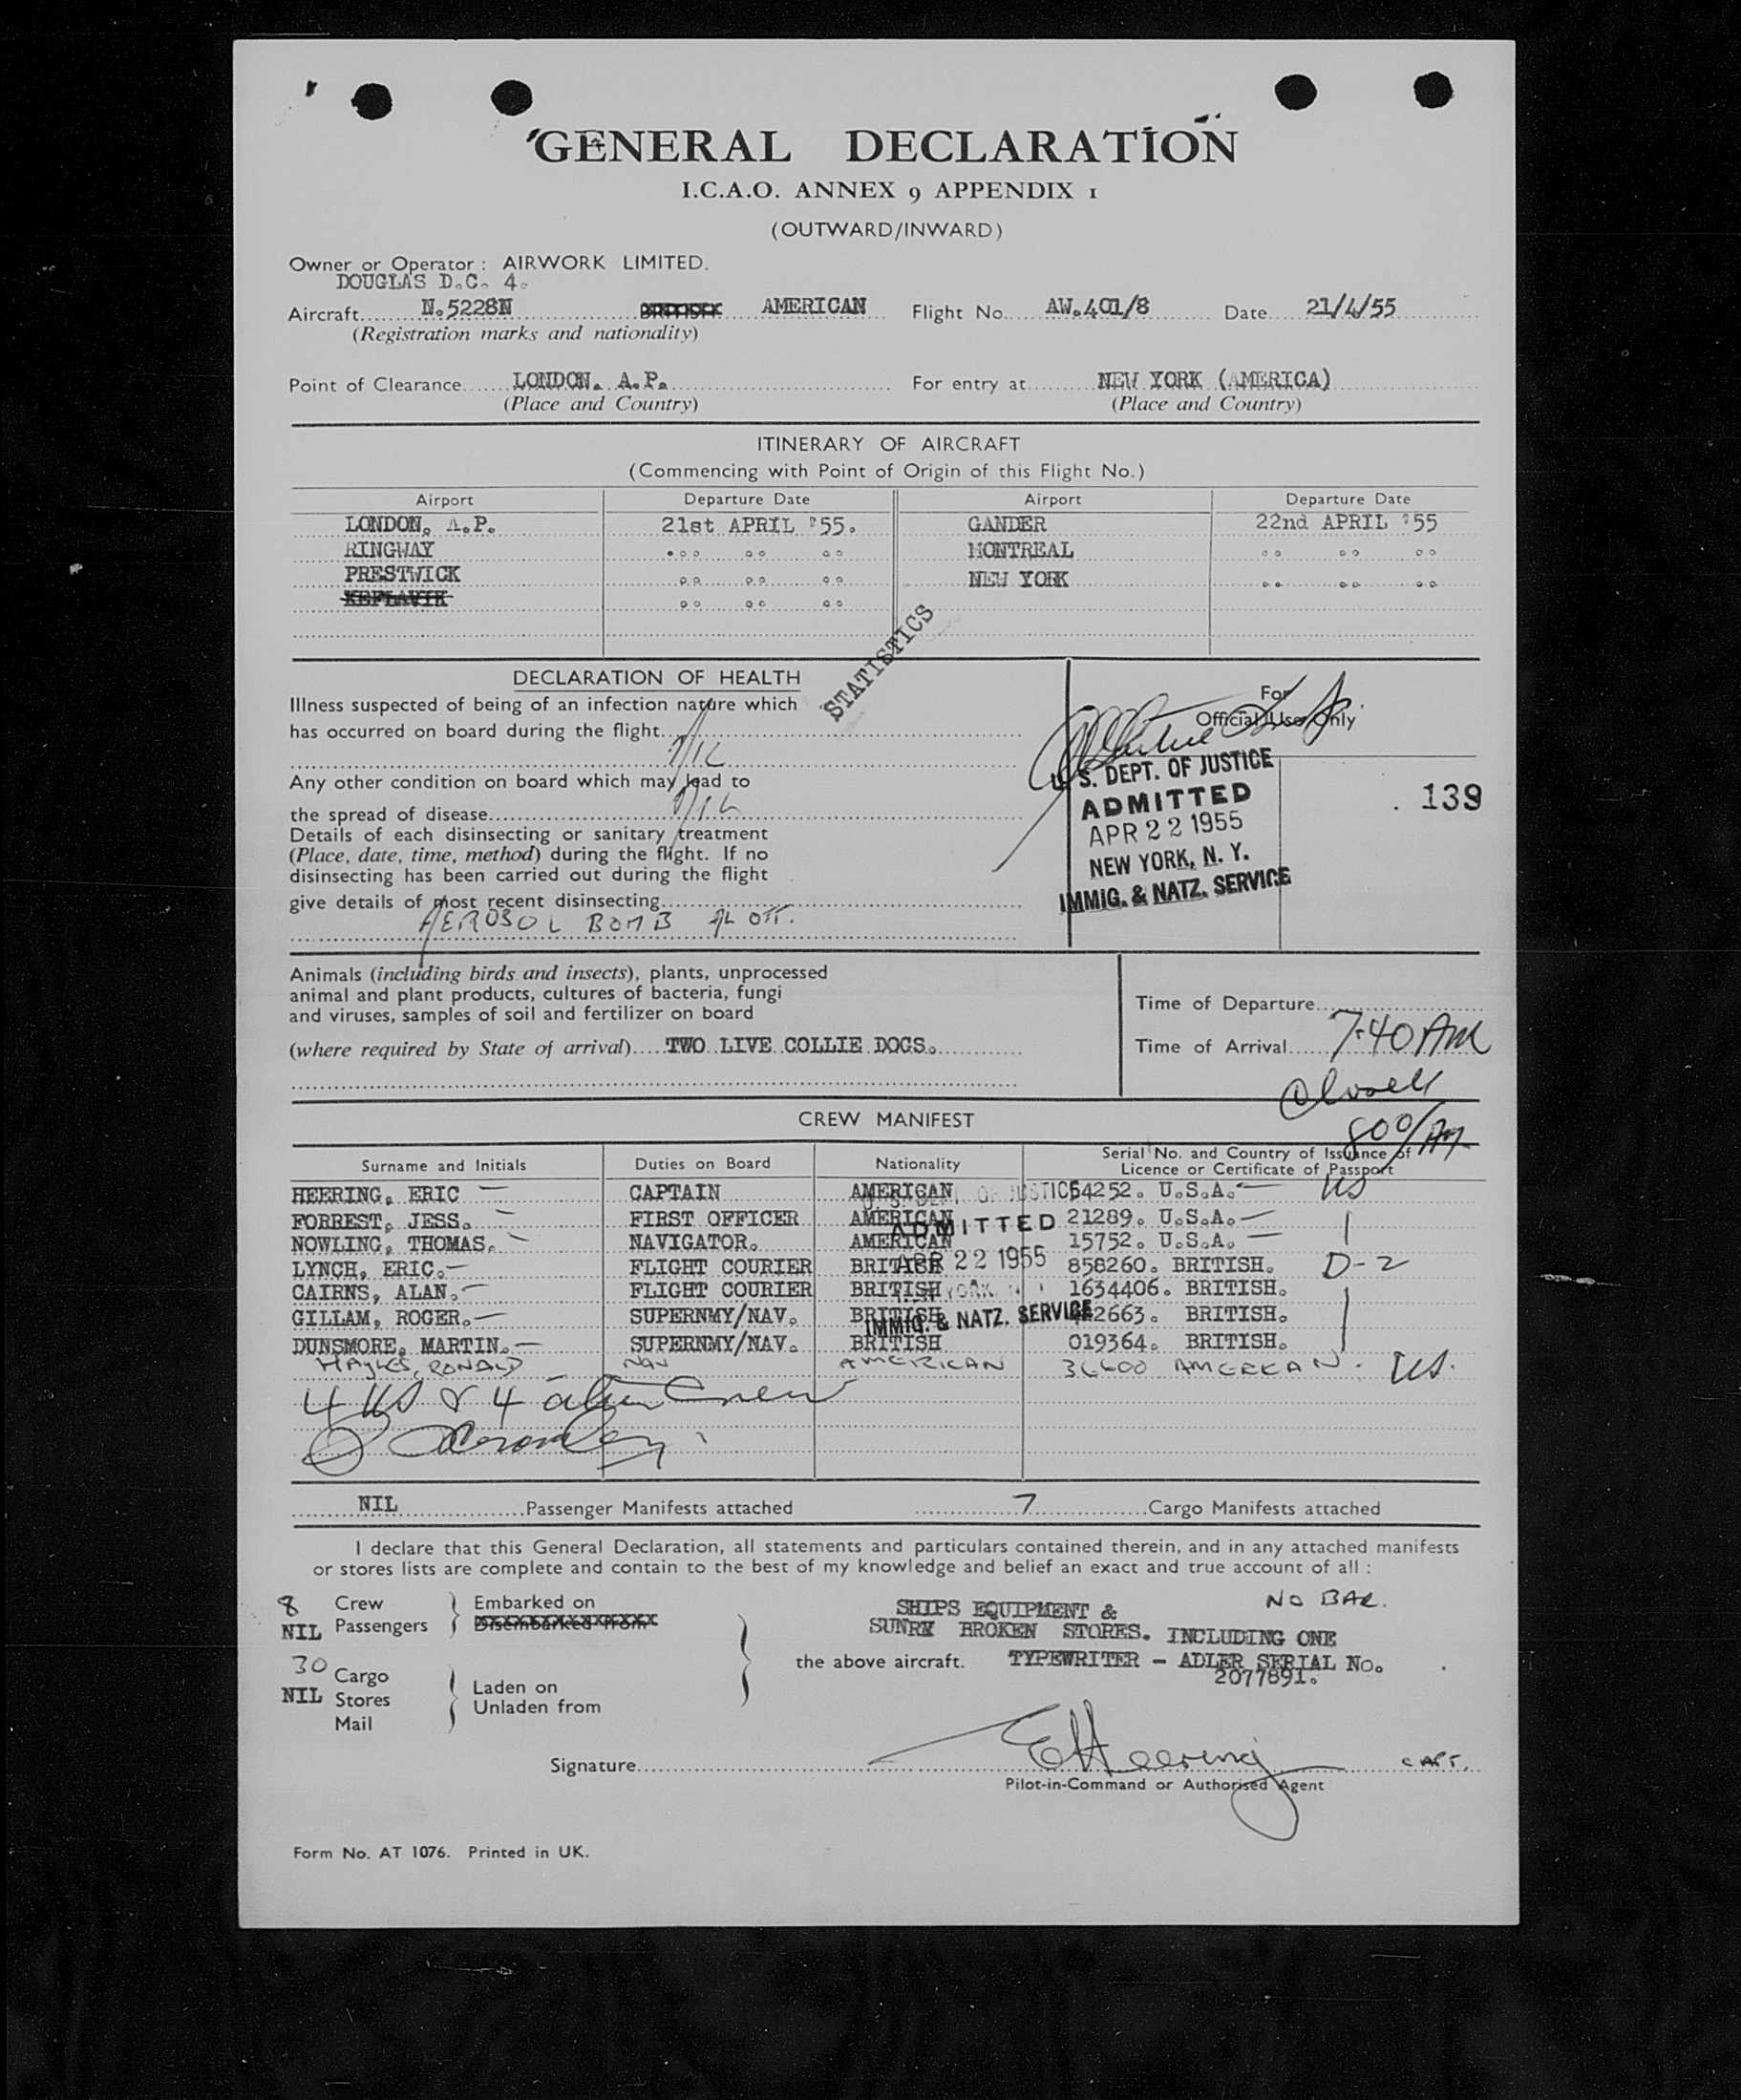 GENERAL DECLARATION
I.C.A.O. ANNEX 9 APPENDIX 1
(OUTWARD/INWARD)
Owner or Operator : AIRWORK LIMITED.
DOUGLAS D.C. 4.
Aircraft N.5228N AMERICAN Flight No. AW.401/8 Date 21/4/55
(Registration marks and nationality)
Point of Clearance LONDON. A.P. For entry at NEW YORK (AMERICA)
(Place and Country) (Place and Country)
ITINERARY OF AIRCRAFT
(Commencing with Point of Origin of this Flight No.)
Airport Departure Date Airport Departure Date
LONDON, A.P. 21st APRIL '55. GANDER 22nd APRIL '55
RINGWAY MONTREAL
PRESTWICK NEW YORK
KEFLAVIK
STATISTICS
DECLARATION OF HEALTH
Illness suspected of being of an infection nature which
has occurred on board during the flight
NIL
Any other condition on board which may lead to
the spread of disease NIL
Details of each disinsecting or sanitary treatment
(Place, date, time, method) during the flight. If no
disinsecting has been carried out during the flight
give details of most recent disinsecting
AEROSOL BOMB
For
Official Use Only
U. S. DEPT. OF JUSTICE
ADMITTED
APR 22 1955
NEW YORK, N. Y.
IMMIG. & NATZ. SERVICE
139
Animals (including birds and insects), plants, unprocessed
animal and plant products, cultures of bacteria, fungi
and viruses, samples of soil and fertilizer on board
(where required by State of arrival) TWO LIVE COLLIE DOGS.
Time of Departure
Time of Arrival 7.40 AM
800/AM
CREW MANIFEST
Surname and Initials Duties on Board Nationality Serial No. and Country of Issuance of
Licence or Certificate of Passport
HEERING, ERIC CAPTAIN AMERICAN 54252. U.S.A. US
FORREST, JESS. FIRST OFFICER AMERICAN 21289. U.S.A.
NOWLING, THOMAS. NAVIGATOR. AMERICAN 15752. U.S.A.
LYNCH, ERIC. FLIGHT COURIER BRITISH 858260. BRITISH. D-2
CAIRNS, ALAN. FLIGHT COURIER BRITISH 1634406. BRITISH.
GILLAM, ROGER. SUPERNMY/NAV. BRITISH 2663. BRITISH.
DUNSMORE, MARTIN. SUPERNMY/NAV. BRITISH 019364. BRITISH.
HAYLES, RONALD NAV AMERICAN 36600 AMERCAN. US.
ADMITTED
APR 22 1955
IMMIG. & NATZ. SERVICE
4 US & 4 alien Crew
NIL Passenger Manifests attached 7 Cargo Manifests attached
I declare that this General Declaration, all statements and particulars contained therein, and in any attached manifests
or stores lists are complete and contain to the best of my knowledge and belief an exact and true account of all :
8 Crew Embarked on
NIL Passengers Disembarked from
30 Cargo Laden on
NIL Stores Unladen from
Mail
NO BAR.
SHIPS EQUIPMENT &
SUNRY BROKEN STORES. INCLUDING ONE
the above aircraft. TYPEWRITER - ADLER SERIAL No.
2077891.
Signature EHeering CAPT.
Pilot-in-Command or Authorised Agent
Form No. AT 1076. Printed in UK.